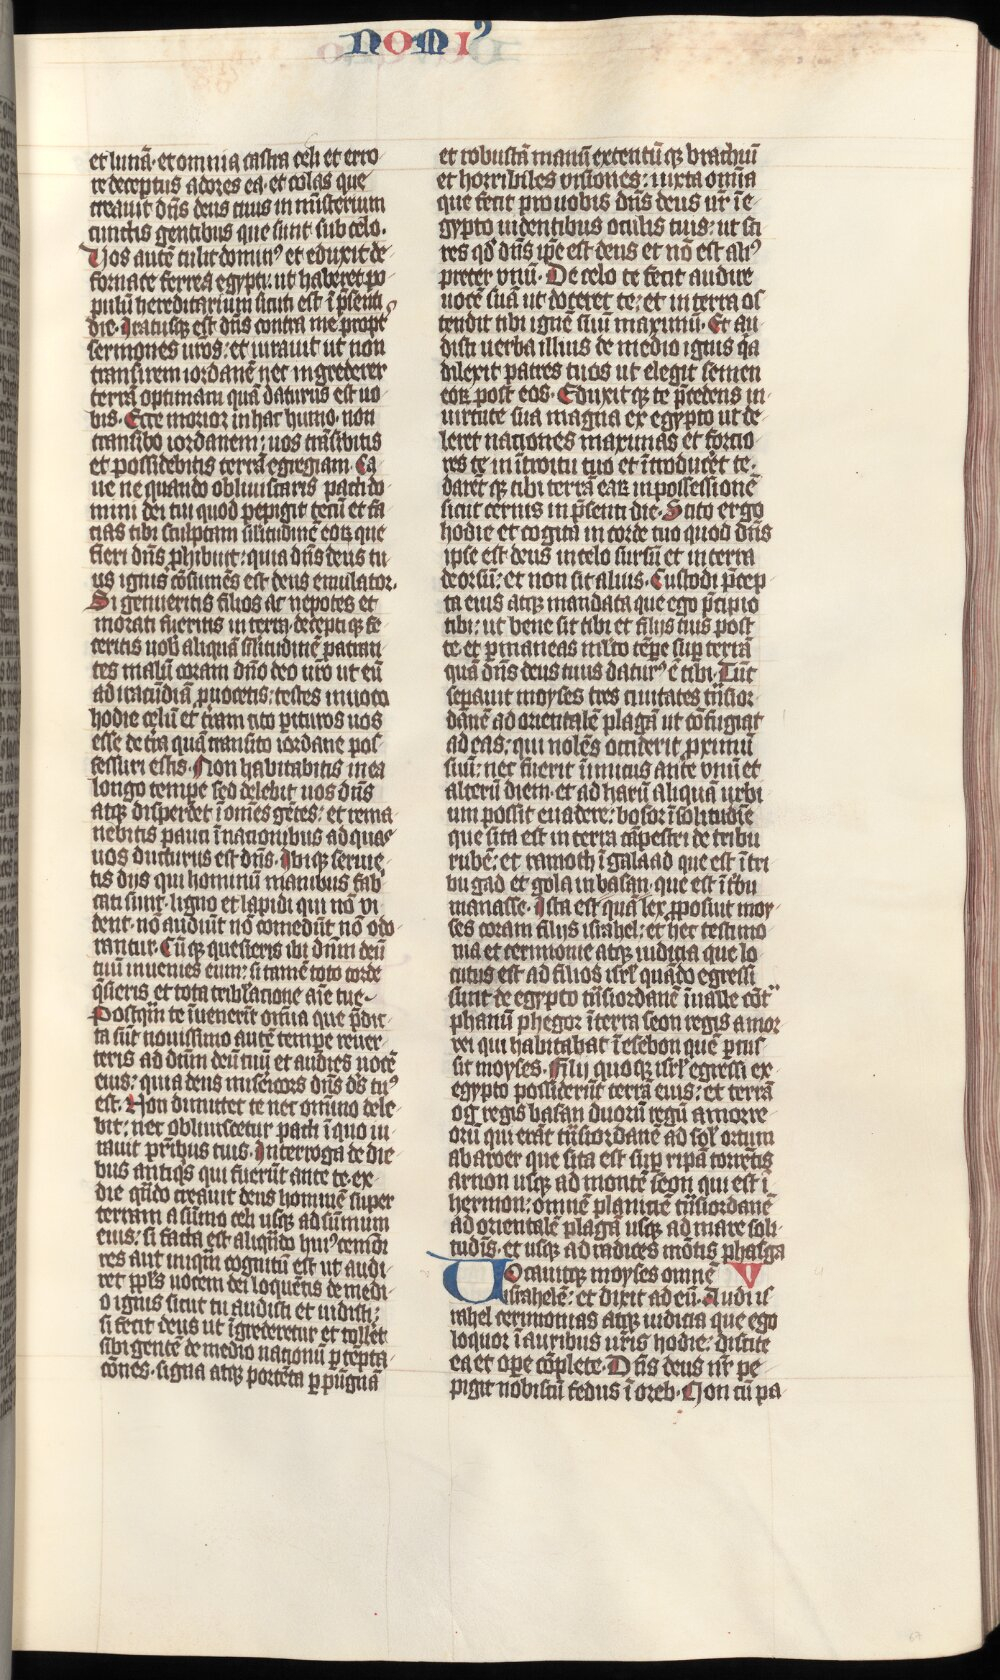 nomi⁹
et lunā· et omnia castra celi et erro
re deceptus adores ea· et colas que
creauit dn̄s deus tuus in ministerium
cunctis gentibus que sunt sub celo.
Uos autē tulit domin⁹ et eduxit de
fornace ferrea egypti: ut haberet po
pulū hereditarium sicuti est ī p̄senti
die. Iratusqꝫ est dn̄s contra me propt̄
sermones ur̄os: et iurauit ut non
transirem iordanē nec ingrederer
terrā optimam quā daturus est uo
bis. Ecce morior in hac humo. non
transibo iordanem: uos trāsibitis
et possidebitis terrā egregiam. Ca
ue ne quando obliuiscaris pacti do
mini dei tui quod pepigit tecū et fa
cias tibi sculptam silitudinē eoꝝ que
fieri dn̄s ꝓhibuit: quia dn̄s deus tu
us ignis cōsumēs est deus emulator.
Si genueritis filios ac nepotes et
morati fueritis in terra· deceptiqꝫ fe
ceritis uob̄ aliquā silitudinē patran
tes malū coram dn̄o deo ur̄o ut eū
ad iracūdiā ꝓuocetis: testes inuoco
hodie celū et t̄ram cito ꝑituros uos
esse de t̄ra quā transito iordane pos
sessuri estis. Non habitabitis in ea
longo tempe sed delebit uos dn̄s
atqꝫ disperdet ī om̄es gētes: et rema
nebitis pauci ī nacionibus ad quas
uos ducturus est dn̄s. Ibiqꝫ seruie
tis dijs qui hominū manibus fab̾
cati sunt· ligno et lapidi qui nō vi
dent· nō audiūt nō comedūt nō odo
rantur. Cūqꝫ quesieris ibi dn̄m deū
tuū inuenies eum: si tamē toto corde
q̄sieris et tota tribl̄acione aīe tue.
Postqm̄ te īuenerīt omīa que p̄dic
ta sūt nouissimo autē tempe reuer
teris ad dn̄m deū tuū et audies uocē
eius: quia deus misericors dn̄s ds̄ tu⁹
est. Non dimittet te nec omīno dele
bit: nec obliuiscetur pacti ī quo iu
rauit pr̄ibus tuis. Interroga de die
bus antiq̄s qui fuerūt ante te· ex
die q̄ndo creauit deus hominē super
terram a sūmo celi usqꝫ ad sūmum
eius: si facta est aliqn̄do hui⁹cemōi
res aut inuqm̄ cognitū est ut audi
ret ppl̄s uocem dei loquētis de medi
o ignis sicut tu audisti et uidisti:
si fecit deus ut īgrederetur et tolleret
sibi gentē de medio nacionū ꝑ tēpta
cōnes· signa atqꝫ portēta ꝑ pūgnā
et robustā manū extentūqꝫ brachiū
et horribiles visiones: iuxta omīa
que fecit pro uobis dn̄s deus ur̄ ī e
gypto uidentibus oculis tuis: ut sci
res qd̄ dn̄s ip̄e est deus et nō est ali⁹
preter vnū. De celo te fecit audire
uocē suā ut doceret te: et in terra os
tendit tibi ignē suū maximū. Et au
disti uerba illius de medio ignis q̄a
dilexit patres tuos ut elegit semen
eoꝝ post eos. Eduxitqꝫ te p̄cedens in
uirtute sua magna ex egypto ut de
leret naciones maximas et forcio
res te in ītroitu tuo et ītroduceret te.
daretqꝫ tibi terrā eaꝝ in possessionē
sicut cernis in p̄senti die. Scito ergo
hodie et cogita in corde tuo quod dn̄s
ipse est deus in celo sursū et in terra
deorsū: et non sit alius. Custodi p̄cep
ta eius atqꝫ mandata que ego p̄cipio
tibi: ut bene sit tibi et filijs tuis post
te et ꝑmaneas ml̄to tēpe suꝑ terrā
quā dn̄s deus tuus datur⁹ ē tibi. Tūc
sepauit moyses tres ciuitates trāsior
danē ad orientalē plagā ut cōfugiat
ad eas: qui nolēs occiderit ꝓximū
suū: nec fuerit īimicus ante vnū et
alterū diem· et ad harū aliquā urbi
um possit euadere: bosor ī solitudīe
que sita est in terra cāpestri de tribu
rubē: et ramoth ī galaad que est ī tri
bu gad et gola in basan· que est ī t̄bu
manasse. Ista est quā lex ꝓposuit moy
ses coram filijs israhel: et hec testimo
nia et cerimonie atqꝫ iudicia que lo
cutus est ad filios isrl̄ quādo egressi
sunt de egypto trāsiordanē ī ualle cōt̄
phanū phegor ī terra seon regis amor
rei qui habitabat ī esebon quē ꝑcus
sit moyses. Filij quoqꝫ isrl̄ egressi ex
egypto possiderūt terrā eius: et terrā
og regis basan duorū regū amorre
orū qui erāt trāsiordanē ad sol̄ ortum
ab aroer que sita est suꝑ ripā torrētis
arnon usqꝫ ad montē seon qui est ī
hermon: omnē planiciē trāsiordanē
ad orientalē plagā usqꝫ ad mare soli
tudīs· et usqꝫ ad radices mōtis phasga
Uocauitqꝫ moyses omnē V
israhelē: et dixit ad eū. Audi is
rahel cerimonias atqꝫ iudicia que ego
loquor ī auribus ur̄is hodie: discite
ea et oꝑe cōplete. Dn̄s deus nr̄ pe
pigit nobiscū fedus ī oreb. Non cū pa
67